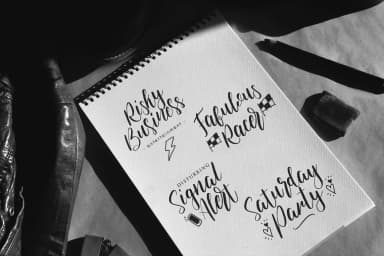 Risky
Business
ENTERTAINMENT
Fabulous
Racer
DISTURBING
Signal
Alert
Saturday
Party